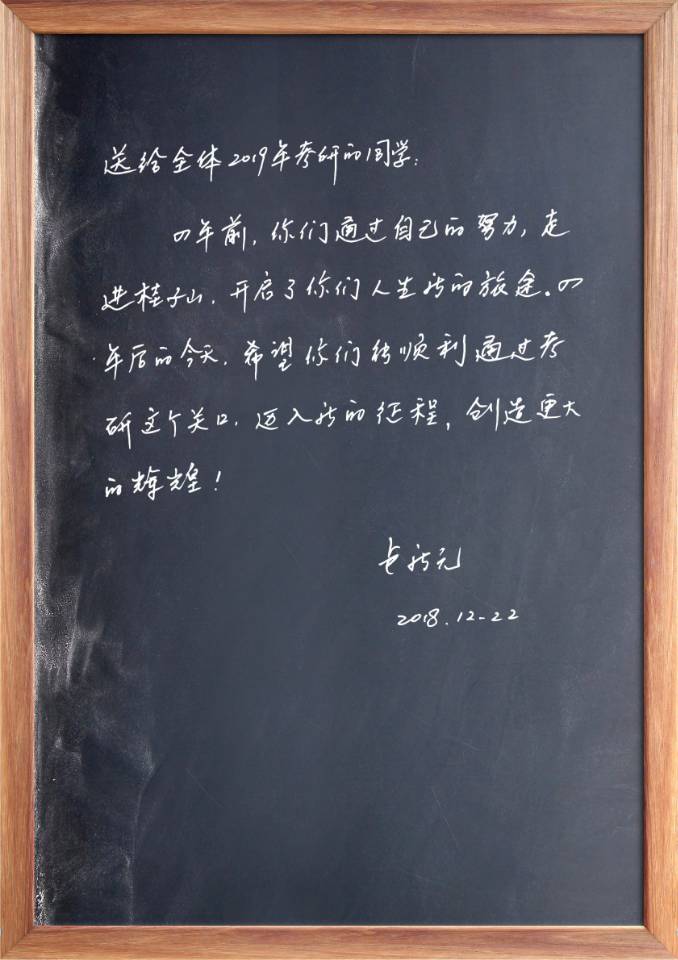 送给全体2019年考研的同学:
四年前,你们通过自己的努力,走
进桂子山,开启了你们人生新的旅途。四
年后的今天,希望你们能顺利通过考
研这个关口,迈入新的征程,创造更大
的辉煌!
卢新元
2018.12-22